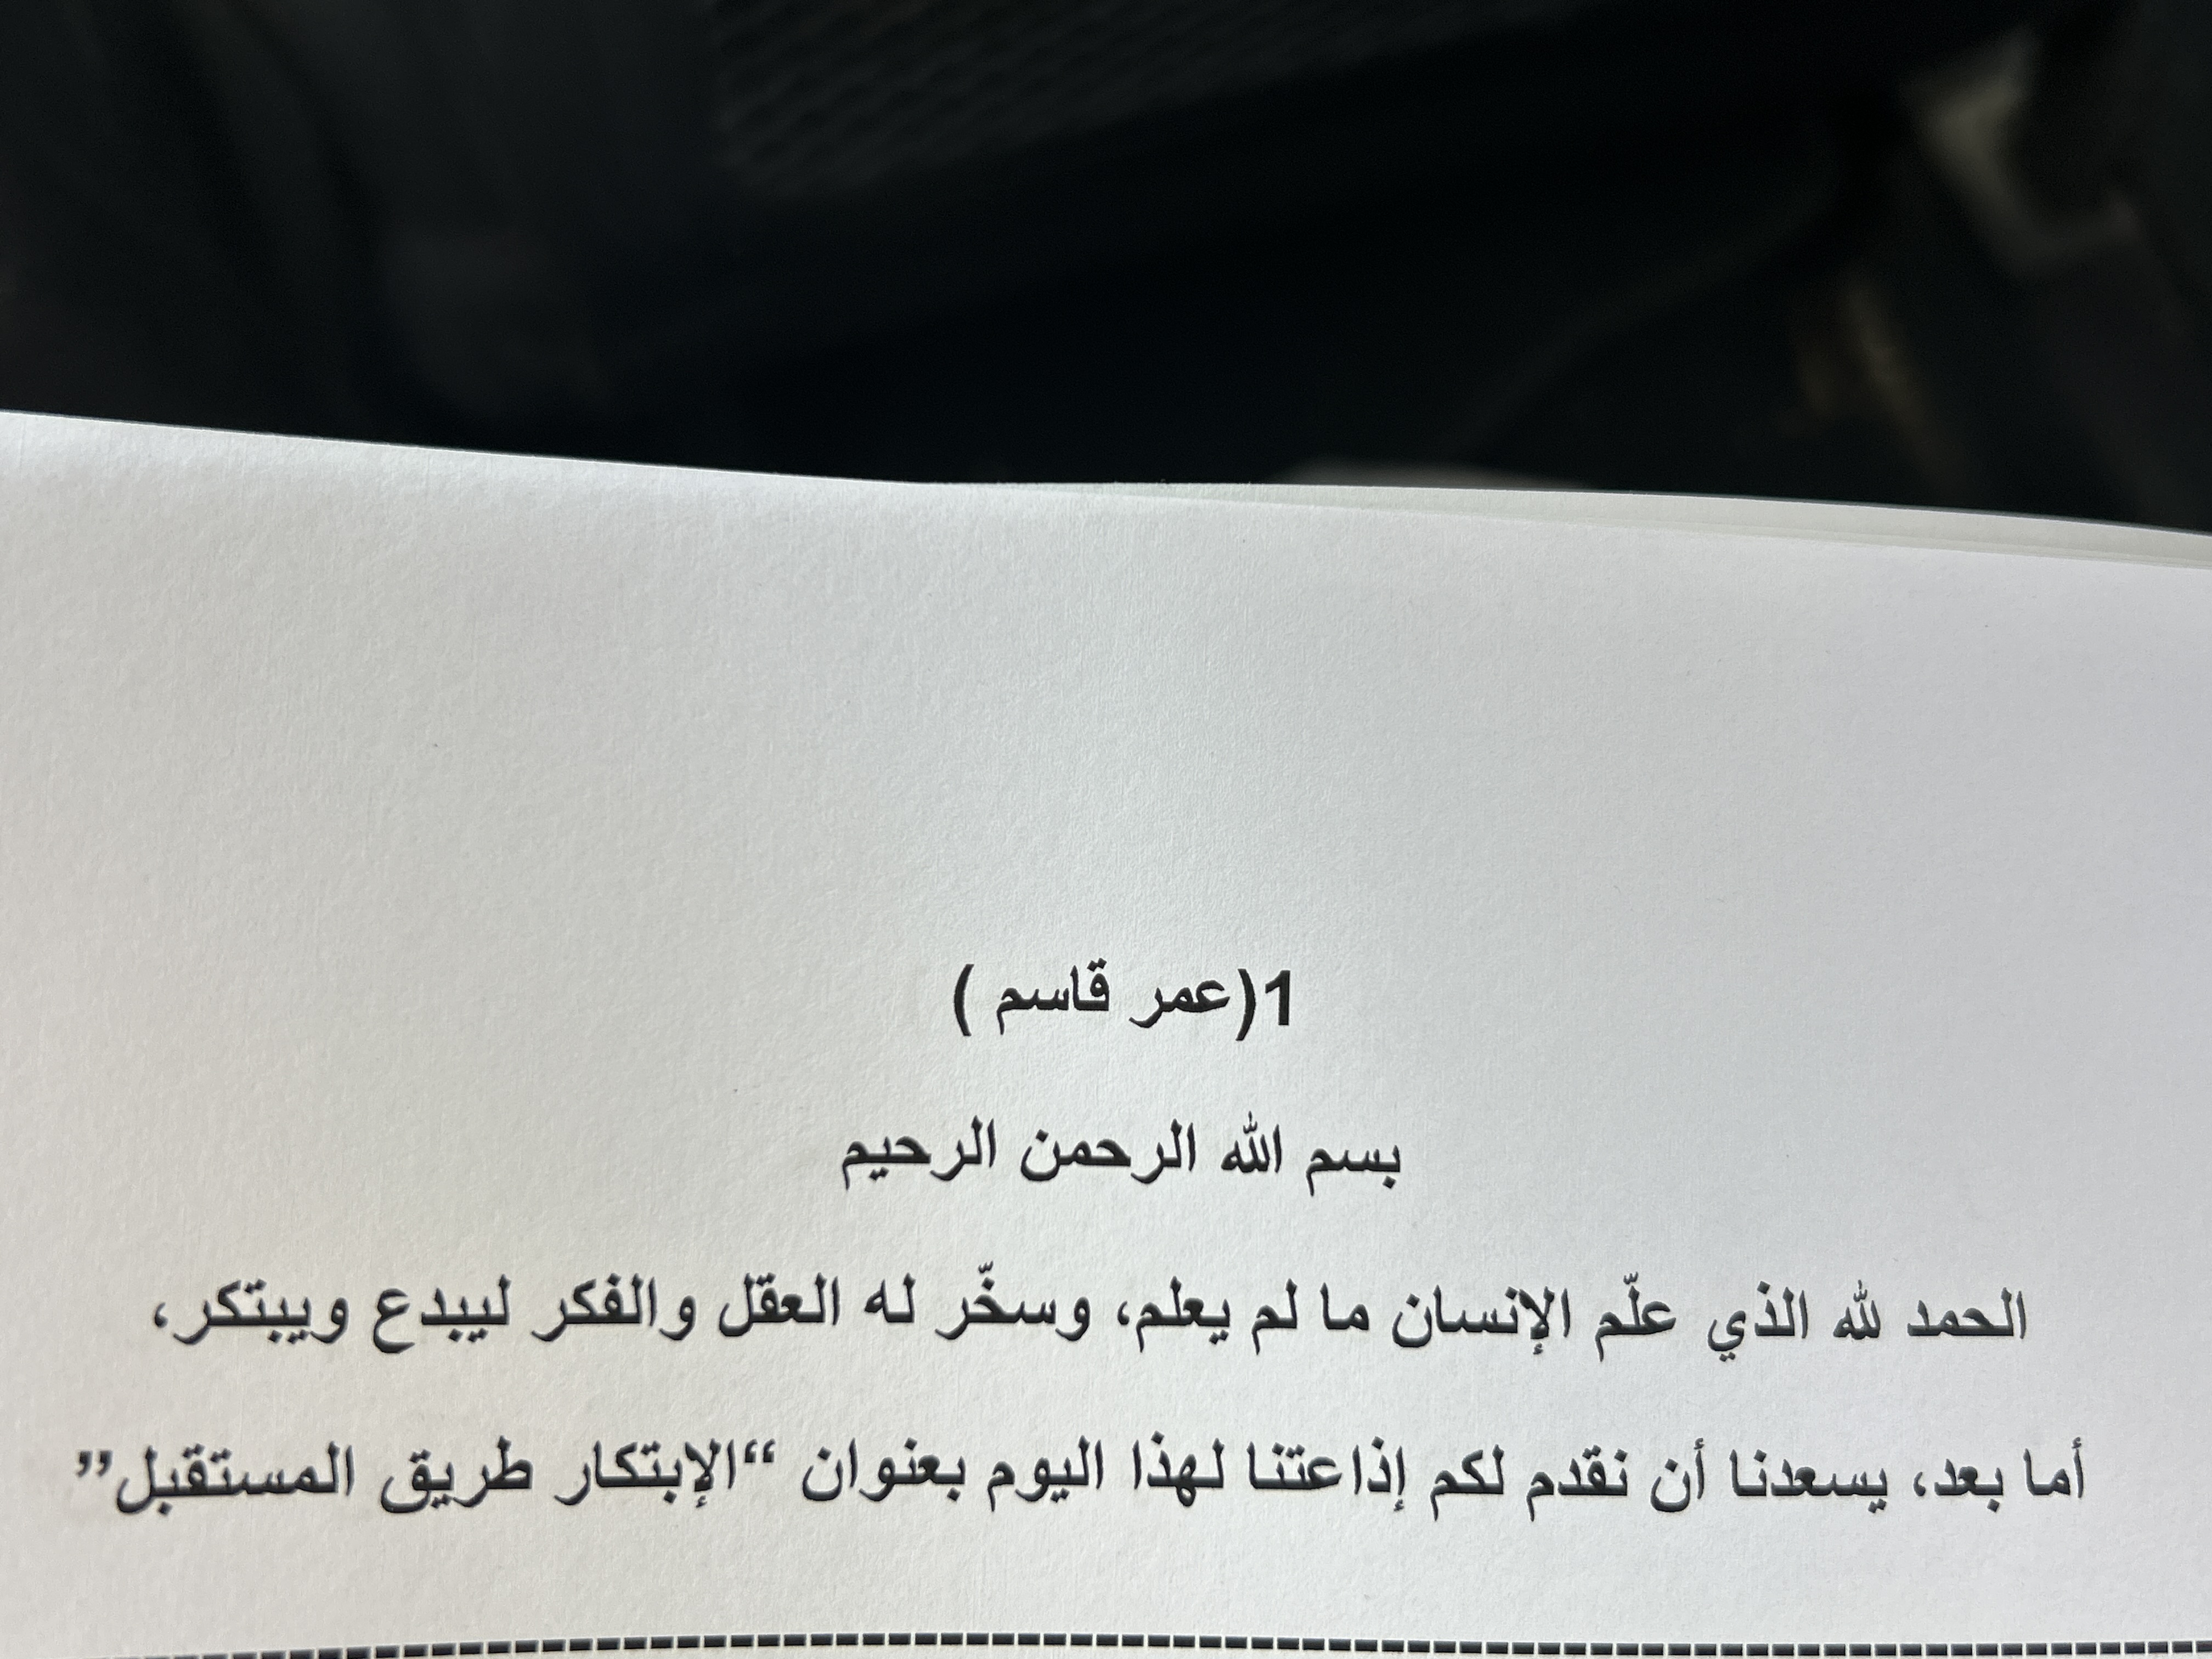 1(عمر قاسم )
بسم الله الرحمن الرحيم
الحمد لله الذي علّم الإنسان ما لم يعلم، وسخّر له العقل والفكر ليبدع ويبتكر،
أما بعد، يسعدنا أن نقدم لكم إذاعتنا لهذا اليوم بعنوان “الإبتكار طريق المستقبل”